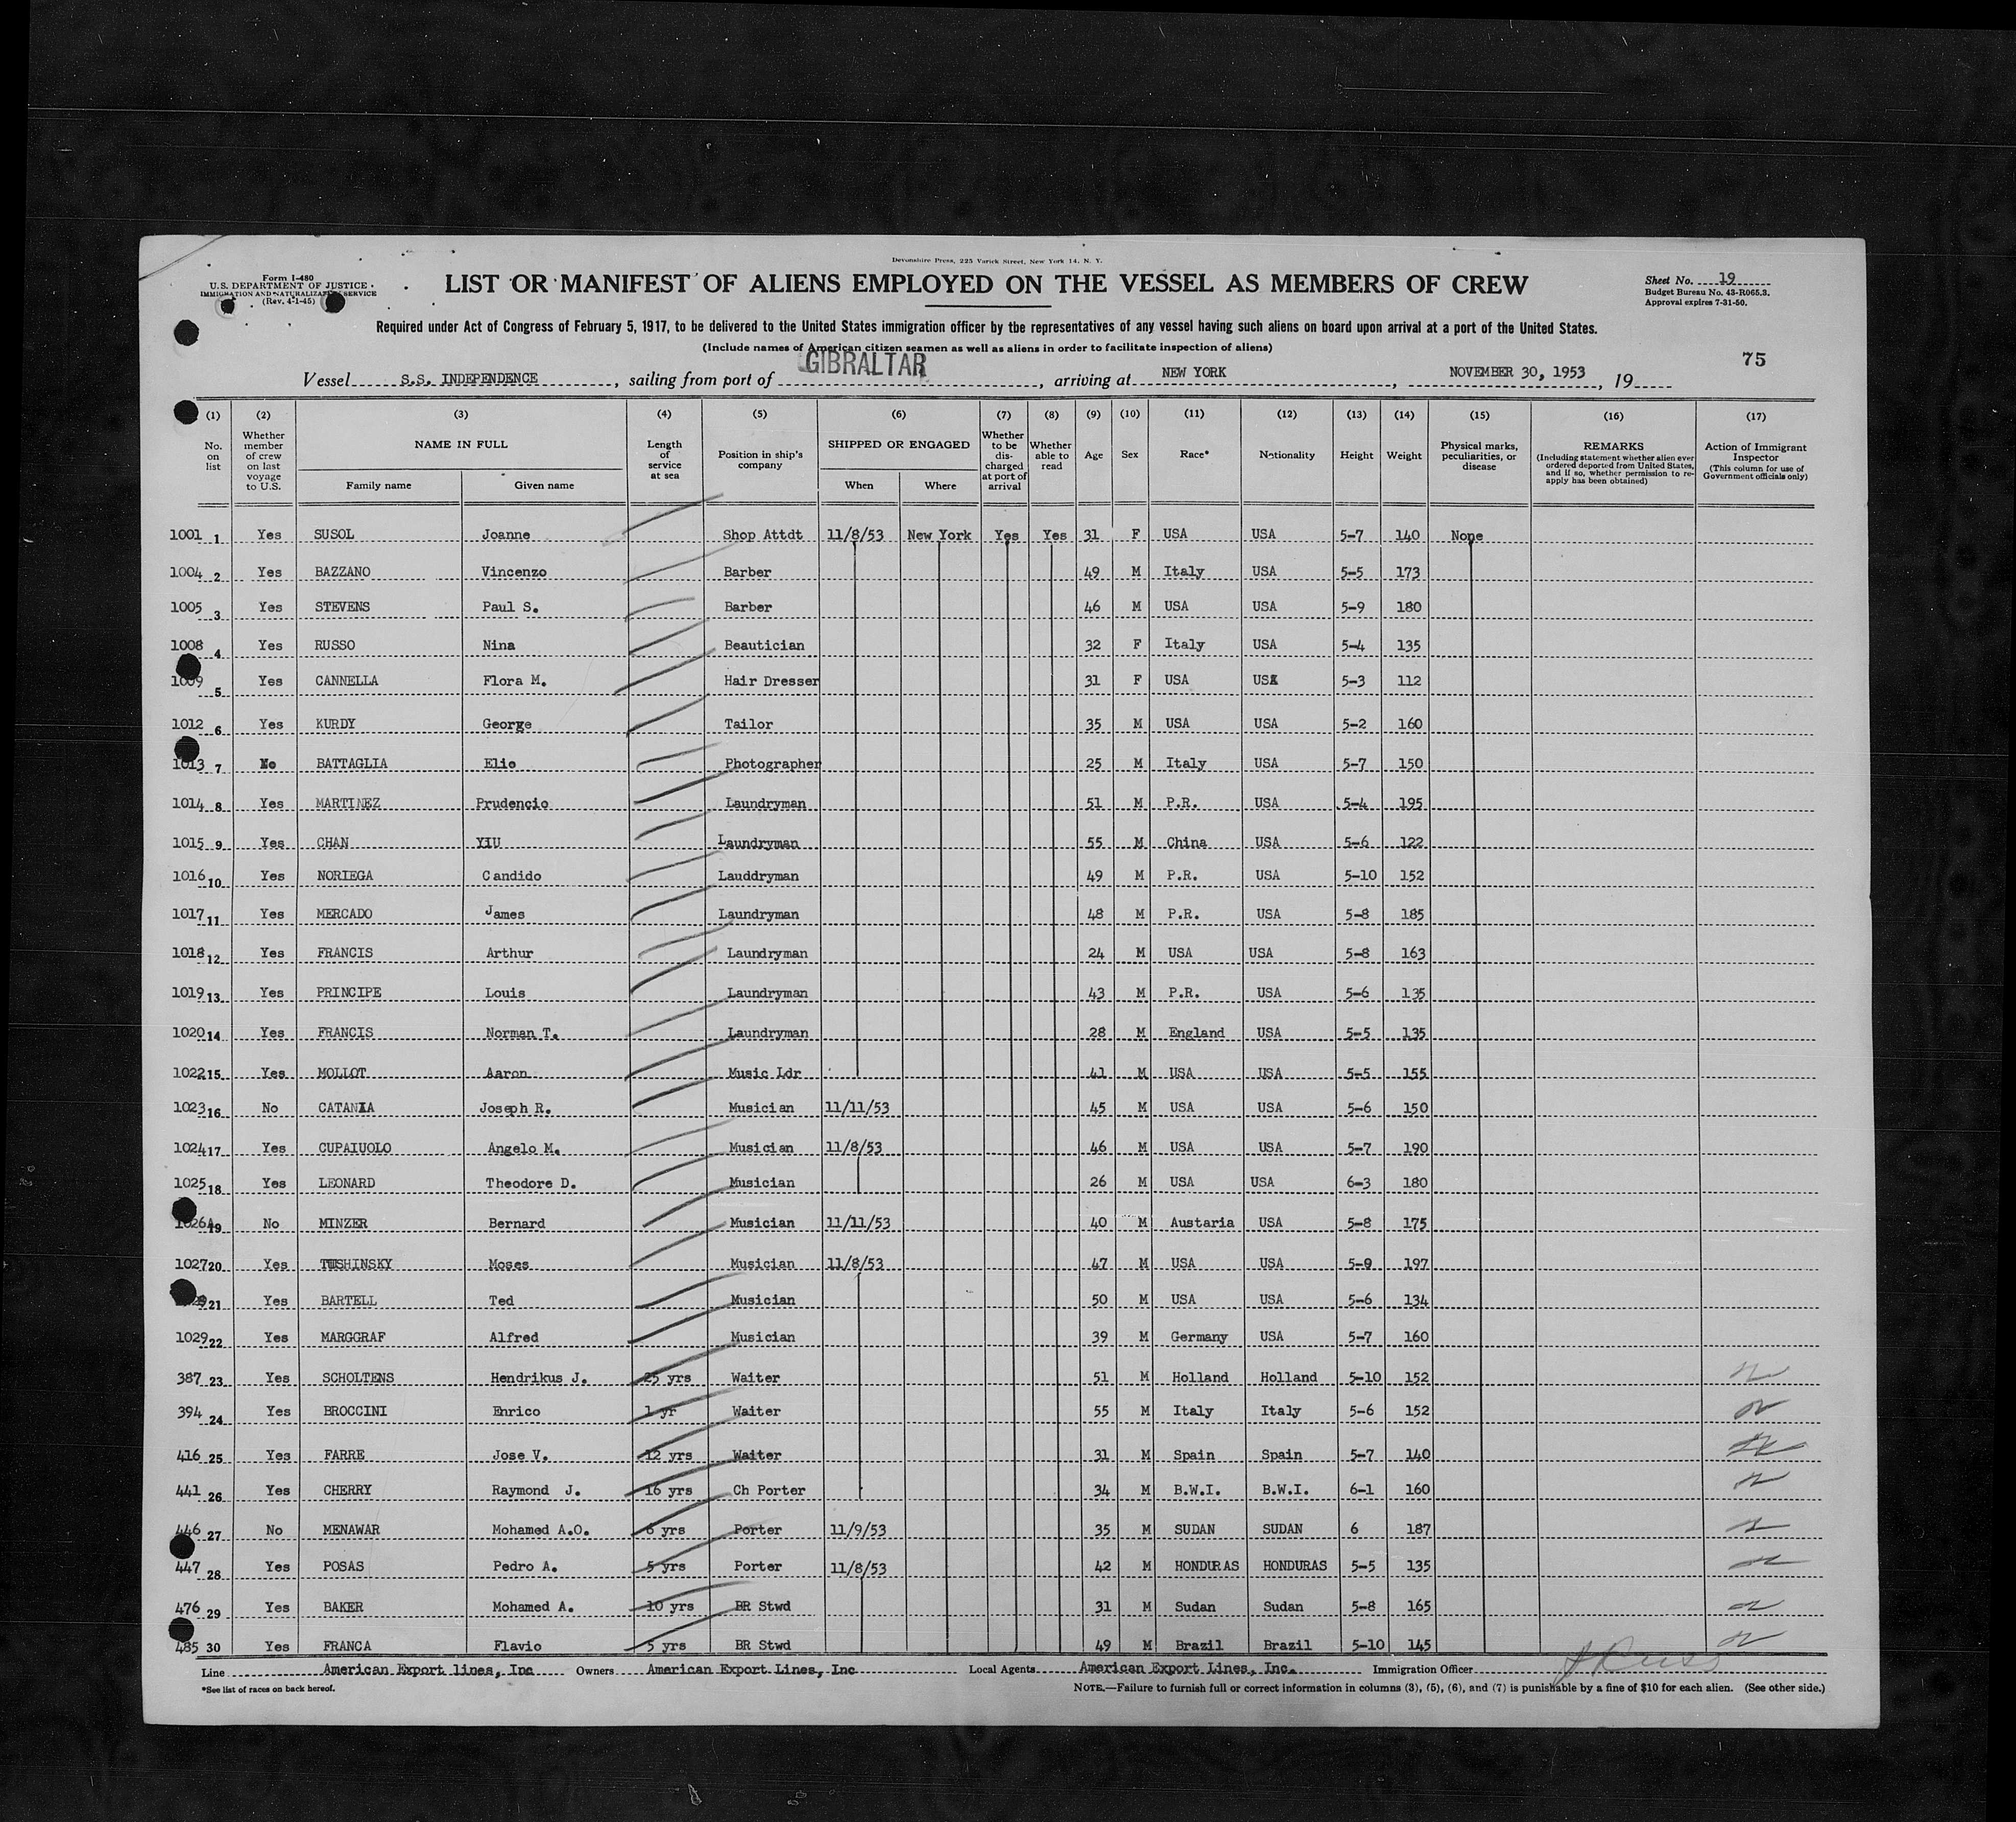 Devonshire Press, 225 Varick Street, New York 14, N. Y.
Form I-480
U.S. DEPARTMENT OF JUSTICE
IMMIGRATION AND NATURALIZATION SERVICE
(Rev. 4-1-45)
LIST OR MANIFEST OF ALIENS EMPLOYED ON THE VESSEL AS MEMBERS OF CREW
Sheet No. 19
Budget Bureau No. 43-R065.3.
Approval expires 7-31-50.
Required under Act of Congress of February 5, 1917, to be delivered to the United States immigration officer by the representatives of any vessel having such aliens on board upon arrival at a port of the United States.
(Include names of American citizen seamen as well as aliens in order to facilitate inspection of aliens)
75
Vessel S.S. INDEPENDENCE, sailing from port of GIBRALTAR, arriving at NEW YORK, NOVEMBER 30, 1953, 19
(1) (2) (3) (4) (5) (6) (7) (8) (9) (10) (11) (12) (13) (14) (15) (16) (17)
No. on list
Whether member of crew on last voyage to U.S.
NAME IN FULL
Family name
Given name
Length of service at sea
Position in ship's company
SHIPPED OR ENGAGED
When
Where
Whether to be discharged at port of arrival
Whether able to read
Age
Sex
Race*
Nationality
Height
Weight
Physical marks, peculiarities, or disease
REMARKS
(Including statement whether alien ever ordered deported from United States, and if so, whether permission to re-apply has been obtained)
Action of Immigrant Inspector
(This column for use of Government officials only)
1001 1 Yes SUSOL Joanne Shop Attdt 11/8/53 New York Yes Yes 31 F USA USA 5-7 140 None
1004 2 Yes BAZZANO Vincenzo Barber 49 M Italy USA 5-5 173
1005 3 Yes STEVENS Paul S. Barber 46 M USA USA 5-9 180
1008 4 Yes RUSSO Nina Beautician 32 F Italy USA 5-4 135
1009 5 Yes CANNELLA Flora M. Hair Dresser 31 F USA USA 5-3 112
1012 6 Yes KURDY George Tailor 35 M USA USA 5-2 160
1013 7 No BATTAGLIA Elio Photographer 25 M Italy USA 5-7 150
1014 8 Yes MARTINEZ Prudencio Laundryman 51 M P.R. USA 5-4 195
1015 9 Yes CHAN YIU Laundryman 55 M China USA 5-6 122
1016 10 Yes NORIEGA Candido Lauddryman 49 M P.R. USA 5-10 152
1017 11 Yes MERCADO James Laundryman 48 M P.R. USA 5-8 185
1018 12 Yes FRANCIS Arthur Laundryman 24 M USA USA 5-8 163
1019 13 Yes PRINCIPE Louis Laundryman 43 M P.R. USA 5-6 135
1020 14 Yes FRANCIS Norman T. Laundryman 28 M England USA 5-5 135
1022 15 Yes MOLLOT Aaron Music Ldr 41 M USA USA 5-5 155
1023 16 No CATANIA Joseph R. Musician 11/11/53 45 M USA USA 5-6 150
1024 17 Yes CUPAIUOLO Angelo M. Musician 11/8/53 46 M USA USA 5-7 190
1025 18 Yes LEONARD Theodore D. Musician 26 M USA USA 6-3 180
1026A 19 No MINZER Bernard Musician 11/11/53 40 M Austaria USA 5-8 175
1027 20 Yes TUSHINSKY Moses Musician 11/8/53 47 M USA USA 5-9 197
21 Yes BARTELL Ted Musician 50 M USA USA 5-6 134
1029 22 Yes MARGGRAF Alfred Musician 39 M Germany USA 5-7 160
387 23 Yes SCHOLTENS Hendrikus J. 25 yrs Waiter 51 M Holland Holland 5-10 152
394 24 Yes BROCCINI Enrico 1 yr Waiter 55 M Italy Italy 5-6 152
416 25 Yes FARRE Jose V. 12 yrs Waiter 31 M Spain Spain 5-7 140
441 26 Yes CHERRY Raymond J. 16 yrs Ch Porter 34 M B.W.I. B.W.I. 6-1 160
446 27 No MENAWAR Mohamed A.O. 6 yrs Porter 11/9/53 35 M SUDAN SUDAN 6 187
447 28 Yes POSAS Pedro A. 5 yrs Porter 11/8/53 42 M HONDURAS HONDURAS 5-5 135
476 29 Yes BAKER Mohamed A. 10 yrs BR Stwd 31 M Sudan Sudan 5-8 165
485 30 Yes FRANCA Flavio 5 yrs BR Stwd 49 M Brazil Brazil 5-10 145
Line American Export lines, Inc Owners American Export Lines, Inc Local Agents American Export Lines, Inc. Immigration Officer
*See list of races on back hereof.
NOTE.—Failure to furnish full or correct information in columns (3), (5), (6), and (7) is punishable by a fine of $10 for each alien. (See other side.)